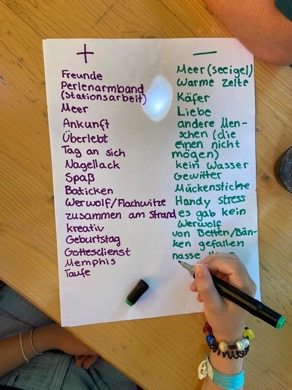 +
Freunde
Perlenarmband
(Stationsarbeit)
Meer
Ankunft
Überlebt
Tag an sich
Nagellack
Spaß
Baticken
Werwolf/Flachwitze
zusammen am Strand
kreativ
Geburtstag
Gottesdienst
Memphis
Taufe
—
Meer (seeigel)
Warme Zelte
Käfer
Liebe
andere Men-
schen (die
einen nicht
mögen)
kein Wasser
Gewitter
Mückenstiche
Handy stress
es gab kein
Werwolf
von Betten/Bän-
ken gefallen
nasse